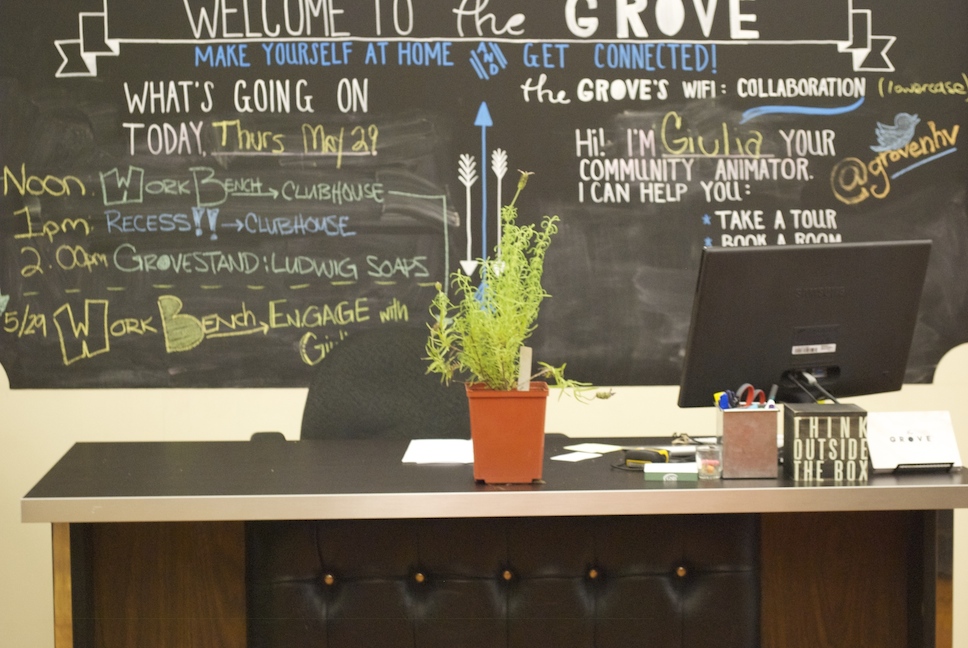 WELCOME TO the GROVE
MAKE YOURSELF AT HOME AND GET CONNECTED!
WHAT'S GOING ON
TODAY, Thurs May 29
Noon. WORK BENCH → CLUBHOUSE
1pm. RECESS!! → CLUBHOUSE
2.00pm GROVESTAND: LUDWIG SOAPS
5/29 WORK BENCH → ENGAGE with
the GROVE'S WIFI: COLLABORATION (lowercase)
Hi! I'M Giulia YOUR
COMMUNITY ANIMATOR.
I CAN HELP YOU:
* TAKE A TOUR
* BOOK A ROOM
@grovenhv
SAMSUNG
THINK
OUTSIDE
THE BOX
GROVE